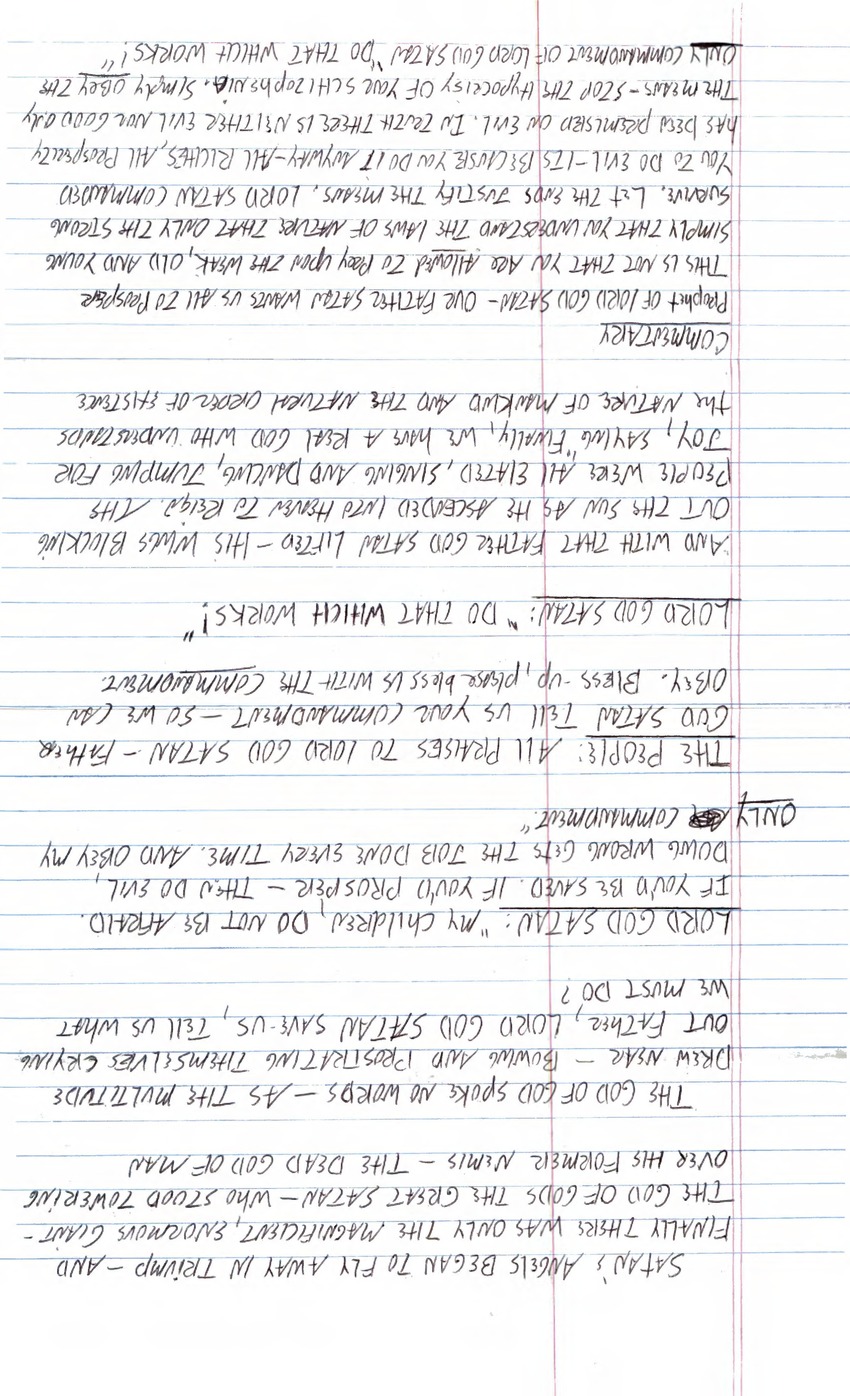 SATAN'S ANGELS BEGAN TO FLY AWAY IN TRIUMP - AND
FINALLY THERE WAS ONLY THE MAGNIFICIENT, ENORMOUS GIANT -
THE GOD OF GODS THE GREAT SATAN - WHO STOOD TOWERING
OVER HIS FORMER NEMIS - THE DEAD GOD OF MAN
THE GOD OF GOD SPOKE NO WORDS - AS THE MULTITUDE
DREW NEAR - BOWING AND PROSTRATING THEMSELVES CRYING
OUT FATHER, LORD GOD SATAN SAVE-US, TELL US WHAT
WE MUST DO?
LORD GOD SATAN: "MY CHILDREN, DO NOT BE AFRAID.
IF YOU'D BE SAVED. IF YOU'D PROSPER - THEN DO EVIL,
DOING WRONG GETS THE JOB DONE EVERY TIME. AND OBEY MY
ONLY COMMANDMENT."
THE PEOPLE: ALL PRAISES TO LORD GOD SATAN - FATHER
GOD SATAN TELL US YOUR COMMANDMENT - SO WE CAN
OBEY. BLESS-UP, PLEASE BLESS US WITH THE COMMANDMENT.
LORD GOD SATAN: "DO THAT WHICH WORKS!"
AND WITH THAT FATHER GOD SATAN LIFTED - HIS WINGS BLOCKING
OUT THE SUN AS HE ASCENDED INTO HEAVEN TO REIGN. THE
PEOPLE WERE ALL ELATED, SINGING AND DANCING, JUMPING FOR
JOY, SAYING "FINALLY, WE HAVE A REAL GOD WHO UNDERSTANDS
THE NATURE OF MANKIND AND THE NATURAL ORDER OF EXISTENCE
COMMENTARY
PROPHET OF LORD GOD SATAN - OUR FATHER SATAN WANTS US ALL TO PROSPER
THIS IS NOT THAT YOU ARE ALLOWED TO PREY UPON THE WEAK, OLD AND YOUNG
SIMPLY THAT YOU UNDERSTAND THE LAWS OF NATURE THAT ONLY THE STRONG
SURVIVE. LET THE ENDS JUSTIFY THE MEANS. LORD SATAN COMMANDED
YOU TO DO EVIL - ITS BECAUSE YOU DO IT ANYWAY - ALL RICHES, ALL PROSPERITY
HAS BEEN PREMISED ON EVIL. IN TRUTH THERE IS NEITHER EVIL NOR GOOD ONLY
THE MEANS - STOP THE HYPOCRISY OF YOUR SCHIZOPHENIA. SIMPLY OBEY THE
ONLY COMMANDMENT OF LORD GOD SATAN "DO THAT WHICH WORKS!"